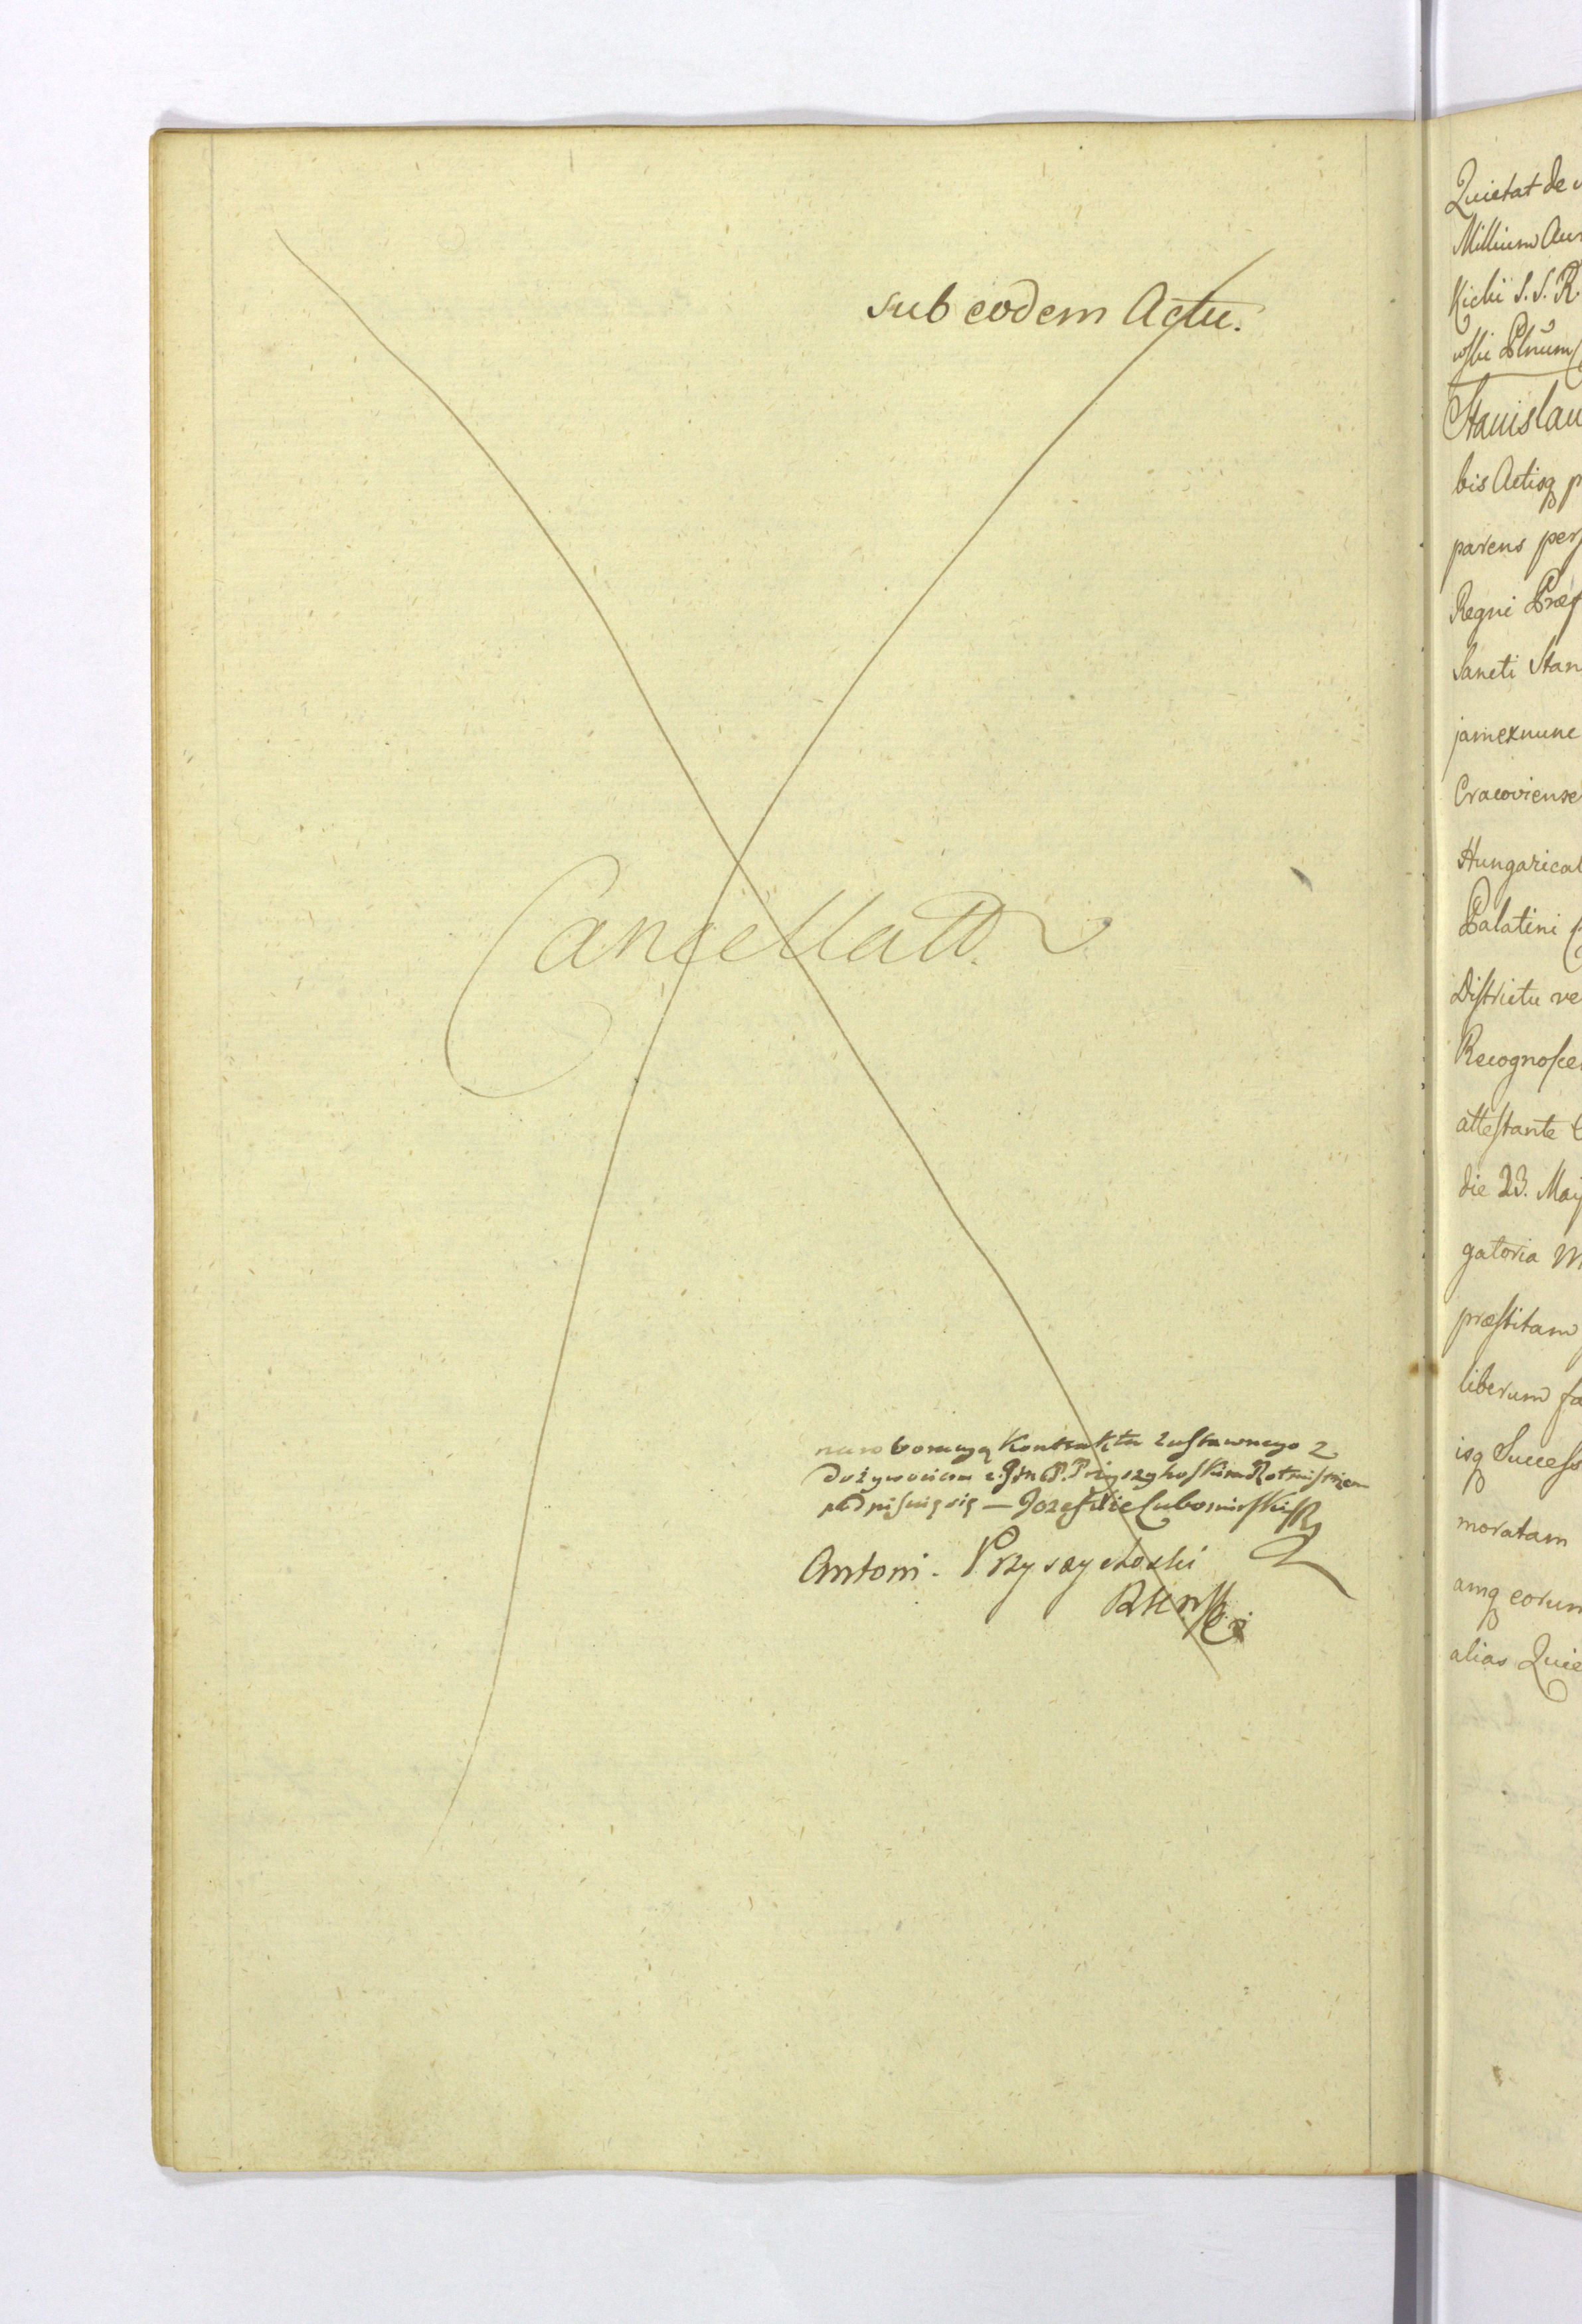 sub eodem Actu.
Cancellatt.
na roboracyą Kontraktu Zastawnego z
Dożywociem z Przyszychoskim Rotmistrzem
podpisuię się — Jozef Xże Lubomirski
Antoni Przyszychoski
Quietat de
Millium Aur
Kicki S. S. R.
wski Plnum
Stanislau
bis Actisq p
parens pers
Regni Præf
Sancti Stan
jamexnunc
Cracoviense
Hungarical
Palatini
Districtu ve
Recognosce
attestante
die 23. Maij
gatoria M
præstitam
liberum fa
isq Success
moratam
amq eorum
alias Quie